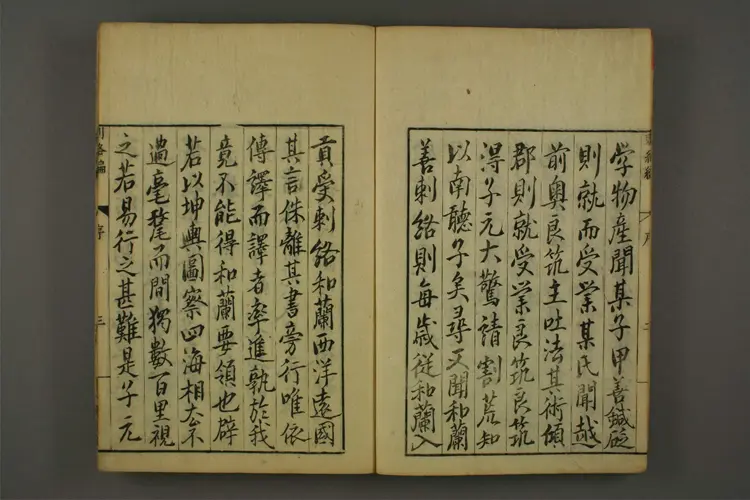 学物産聞某子甲善鍼砭
則就而受業某氏聞越
前奥良筑主吐法其術傾
郡則就受業良筑良筑
得子元大驚請割荒知
以南聽子矣尋又聞和蘭
善刺絡則每歲從和蘭入
貢受刺絡和蘭西洋遠國
其言侏離其書旁行唯依
傳譯而譯者率進孰於我
竟不能得和蘭要領也辟
若以坤輿圖察四海相去不
過毫釐而間獨數百里視
之若易行之甚難是子元
刺絡編
序
三